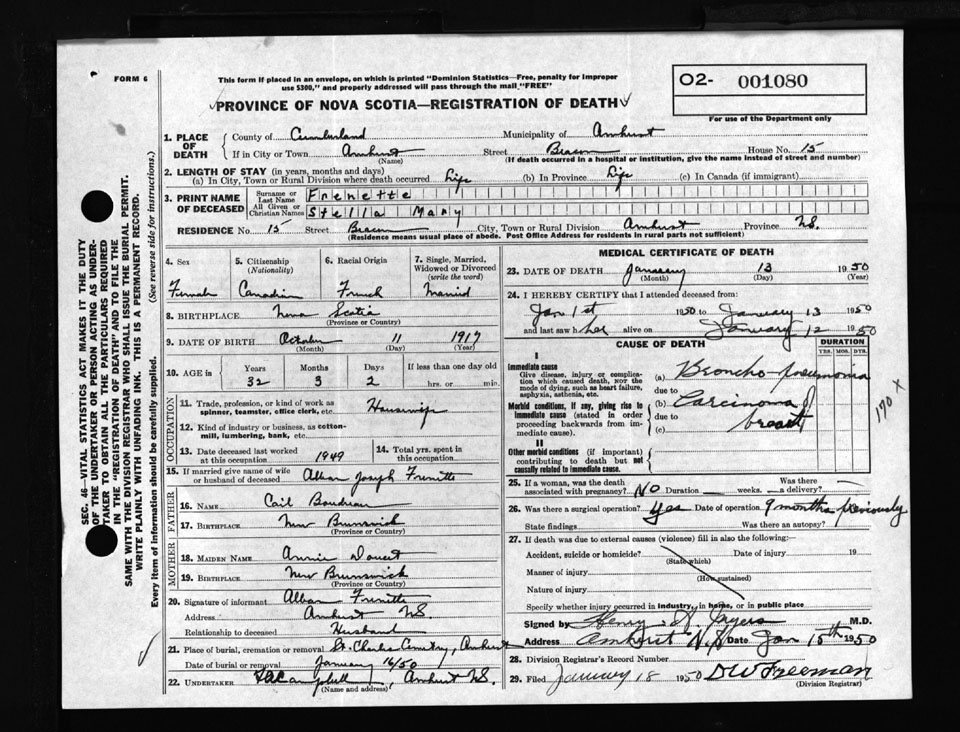 FORM 6
This form if placed in an envelope, on which is printed "Dominion Statistics—Free, penalty for improper
use $300," and properly addressed will pass through the mail "FREE"
O2- 001080
For use of the Department only
PROVINCE OF NOVA SCOTIA—REGISTRATION OF DEATH
1. PLACE OF DEATH County of Cumberland Municipality of Amherst
If in City or Town Amherst Street Beacon House No. 15
(Name) (If death occurred in a hospital or institution, give the name instead of street and number)
2. LENGTH OF STAY (in years, months and days)
(a) In City, Town or Rural Division where death occurred Life (b) In Province Life (c) In Canada (if immigrant)
3. PRINT NAME OF DECEASED Surname or Last Name Frenette
All Given or Christian Names Stella Mary
RESIDENCE No. 15 Street Beacon City, Town or Rural Division Amherst Province N.S.
(Residence means usual place of abode. Post Office Address for residents in rural parts not sufficient)
4. Sex 5. Citizenship (Nationality) 6. Racial Origin 7. Single, Married, Widowed or Divorced (write the word)
Female Canadian French Married
8. BIRTHPLACE Nova Scotia
(Province or Country)
9. DATE OF BIRTH October 11 1917
(Month) (Day) (Year)
10. AGE in Years Months Days If less than one day old
32 3 2 hrs. or min.
OCCUPATION
11. Trade, profession or kind of work as spinner, teamster, office clerk, etc. Housewife
12. Kind of industry or business, as cotton-mill, lumbering, bank, etc.
13. Date deceased last worked at this occupation 1949 14. Total yrs. spent in this occupation
15. If married give name of wife or husband of deceased Alban Joseph Frenette
FATHER
16. Name
17. Birthplace New Brunswick
MOTHER
18. Maiden Name Annie Doucet
19. Birthplace New Brunswick
(Province or Country)
20. Signature of informant Alban Frenette
Address Amherst N.S.
Relationship to deceased Husband
21. Place of burial, cremation or removal St. Charles Cemetry, Amherst
Date of burial or removal January 16/50
22. UNDERTAKER Campbell, Amherst N.S.
(Name and address)
MEDICAL CERTIFICATE OF DEATH
23. DATE OF DEATH January 13 1950
(Month) (Day) (Year)
24. I HEREBY CERTIFY that I attended deceased from:
Jan 1st 1950 to January 13 1950
and last saw her alive on January 12 1950
CAUSE OF DEATH DURATION
YRS. MOS. DYS.
I
Immediate cause
Give disease, injury or complication which caused death, NOT the mode of dying, such as heart failure, asphyxia, asthenia, etc.
(a) Broncho-pneumonia
due to
Morbid conditions, if any, giving rise to immediate cause (stated in order proceeding backwards from immediate cause).
(b) Carcinoma of
due to
(c) breast
170 x
II
Other morbid conditions (if important) contributing to death but not causally related to immediate cause.
25. If a woman, was the death associated with pregnancy? No Duration weeks. Was there a delivery?
26. Was there a surgical operation? Yes Date of operation 9 months previously
State findings Was there an autopsy?
27. If death was due to external causes (violence) fill in also the following:—
Accident, suicide or homicide? Date of injury 19
(State which)
Manner of injury
(How sustained)
Nature of injury
Specify whether injury occurred in industry, in home, or in public place
Signed by Henry M.D.
Address Amherst N.S. Date Jan 15th 1950
28. Division Registrar's Record Number
29. Filed January 18 1950 DW Freeman
(Division Registrar)
SEC. 46—VITAL STATISTICS ACT MAKES IT THE DUTY
OF THE UNDERTAKER OR PERSON ACTING AS UNDER-
TAKER TO OBTAIN ALL THE PARTICULARS REQUIRED
IN THE "REGISTRATION OF DEATH" AND TO FILE THE
SAME WITH THE DIVISION REGISTRAR WHO SHALL ISSUE THE BURIAL PERMIT.
WRITE PLAINLY WITH UNFADING INK. THIS IS A PERMANENT RECORD.
Every item of information should be carefully supplied. (See reverse side for instructions.)